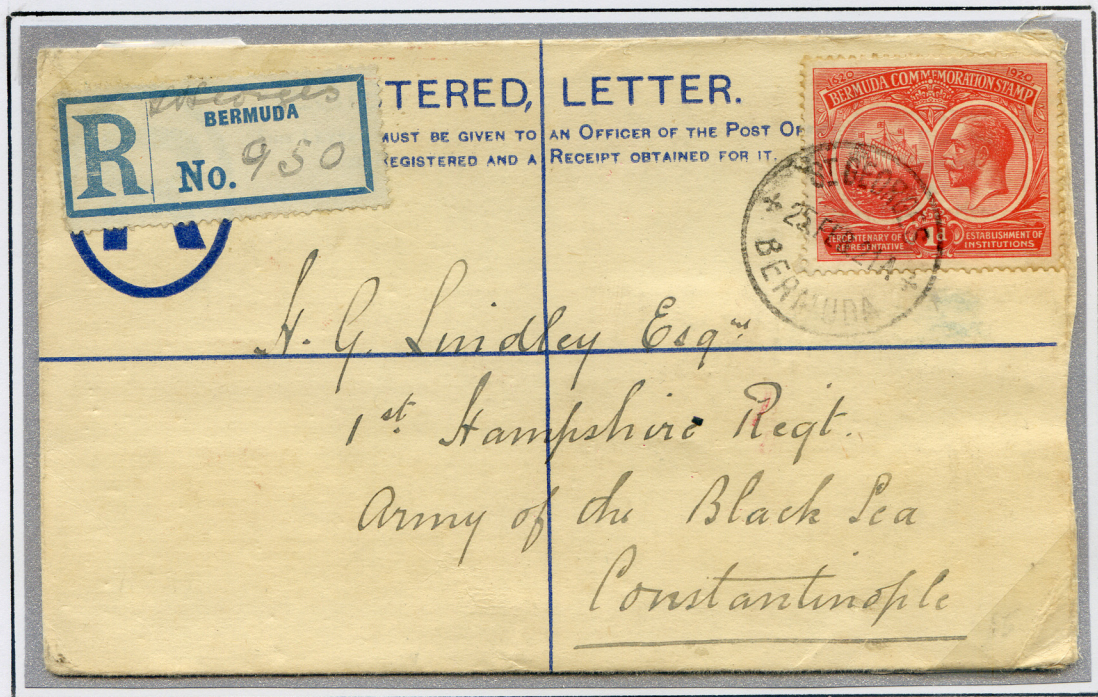 St Georges
BERMUDA
R
No. 950
TERED, LETTER.
MUST BE GIVEN TO AN OFFICER OF THE POST OF
REGISTERED AND A RECEIPT OBTAINED FOR IT.
1620 1920
BERMUDA COMMEMORATION STAMP
TERCENTENARY OF REPRESENTATIVE
1d
ESTABLISHMENT OF INSTITUTIONS
25 FE 21 A
BERMUDA
H. G. Lindley Esqre
1st Hampshire Regt.
Army of the Black Sea
Constantinople